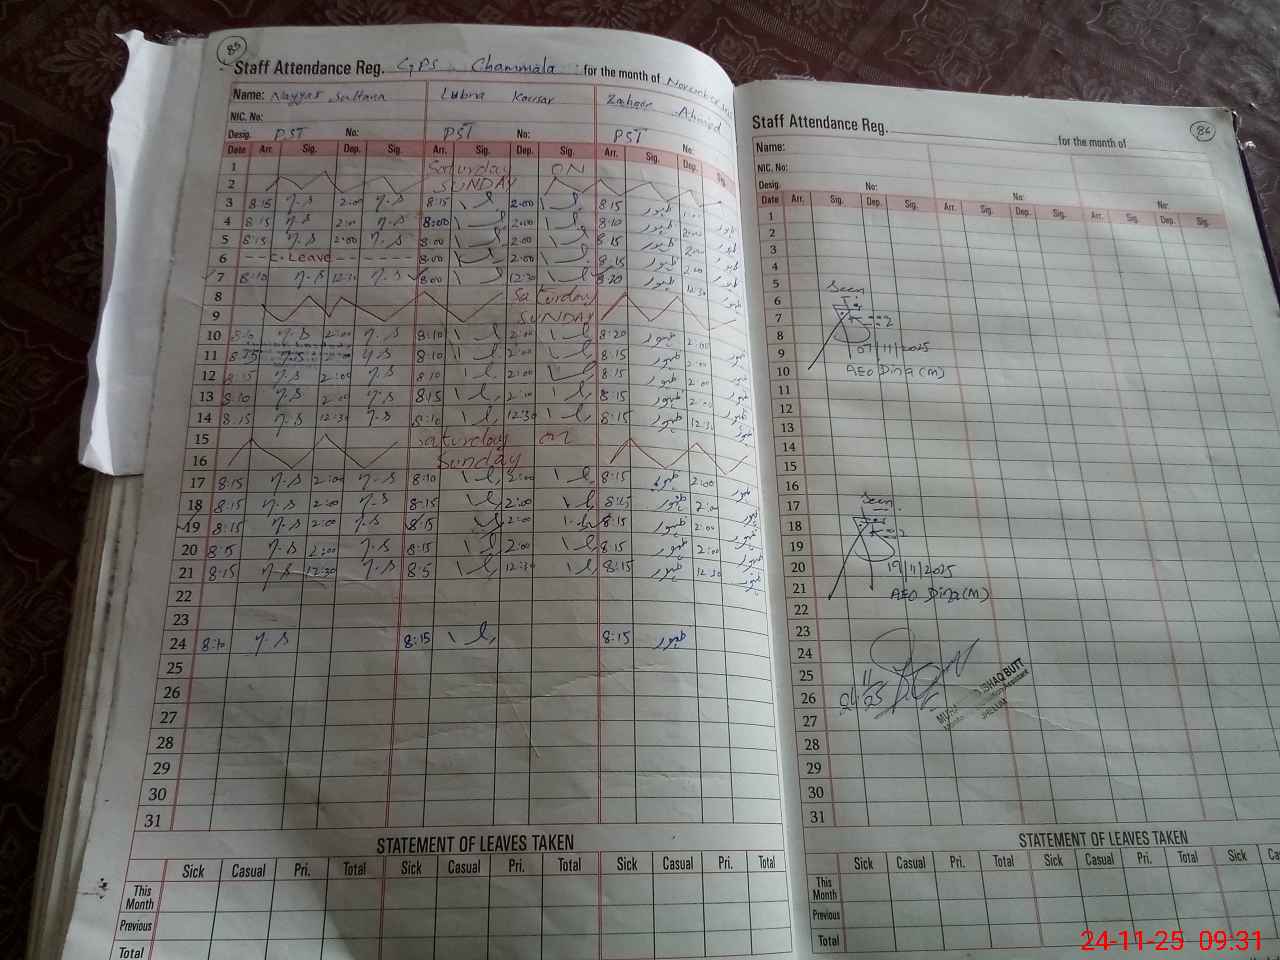 85
Staff Attendance Reg. GPS Chammala for the month of November
Name: Nayyar Sultana Lubna Kousar Zaheer Ahmed
NIC. No:
Desig. PST No: PST No: PST No:
Date Arr. Sig. Dep. Sig. Arr. Sig. Dep. Sig. Arr. Sig. Dep. Sig.
1 Saturday ON
2 SUNDAY
3 8:15 n.s 2:00 n.s 8:15 2:00 8:15 ظہور
4 8:15 n.s 2:00 n.s 8:00 2:00 8:10 ظہور 2:00 ظہور
5 8:15 n.s 2:00 n.s 8:00 2:00 8:15 ظہور 2:00 ظہور
6 -- C. Leave ------ 8:00 2:00 8:15 ظہور 2:00 ظہور
7 8:10 n.s 12:30 n.s 8:00 12:30 8:20 ظہور 12:30 ظہور
8 Saturday
9 SUNDAY
10 n.s 2:00 n.s 8:10 2:00 8:20 ظہور 2:00
11 8:15 n.s n.s 8:10 2:00 8:15 ظہور 2:00 ظہور
12 8:15 n.s 2:00 n.s 8:10 2:00 8:15 ظہور 2:00 ظہور
13 8:10 n.s 2:00 n.s 8:15 2:00 8:15 ظہور 2:00 ظہور
14 8:15 n.s 12:30 n.s 8:10 12:30 8:15 ظہور 12:30 ظہور
15 Saturday on
16 Sunday
17 8:15 n.s 2:00 n.s 8:10 2:00 8:15 ظہور 2:00 ظہور
18 8:15 n.s 2:00 n.s 8:15 2:00 8:15 ظہور 2:00 ظہور
19 8:15 n.s 2:00 n.s 8:15 2:00 8:15 ظہور 2:00 ظہور
20 8:15 n.s 2:00 n.s 8:15 2:00 8:15 ظہور 2:00 ظہور
21 8:15 n.s 12:30 n.s 8:5 12:30 8:15 ظہور 12:30 ظہور
22
23
24 8:10 n.s 8:15 8:15 ظہور
25
26
27
28
29
30
31
STATEMENT OF LEAVES TAKEN
Sick Casual Pri. Total Sick Casual Pri. Total Sick Casual Pri. Total
This Month
Previous
Total
86
Staff Attendance Reg. for the month of
Name:
NIC. No:
Desig. No: No: No:
Date Arr. Sig. Dep. Sig. Arr. Sig. Dep. Sig. Arr. Sig. Dep. Sig.
1
2
3
4
5
6 Seen
7
8
9 07/11/2025
10 AEO Dina (M)
11
12
13
14
15
16
17 Seen
18
19
20 19/11/2025
21 AEO Dina (M)
22
23
24
25
26 24/11/25
ISHAQ BUTT
JHELUM
27
28
29
30
31
STATEMENT OF LEAVES TAKEN
Sick Casual Pri. Total Sick Casual Pri. Total Sick
This Month
Previous
Total
24-11-25 09:31